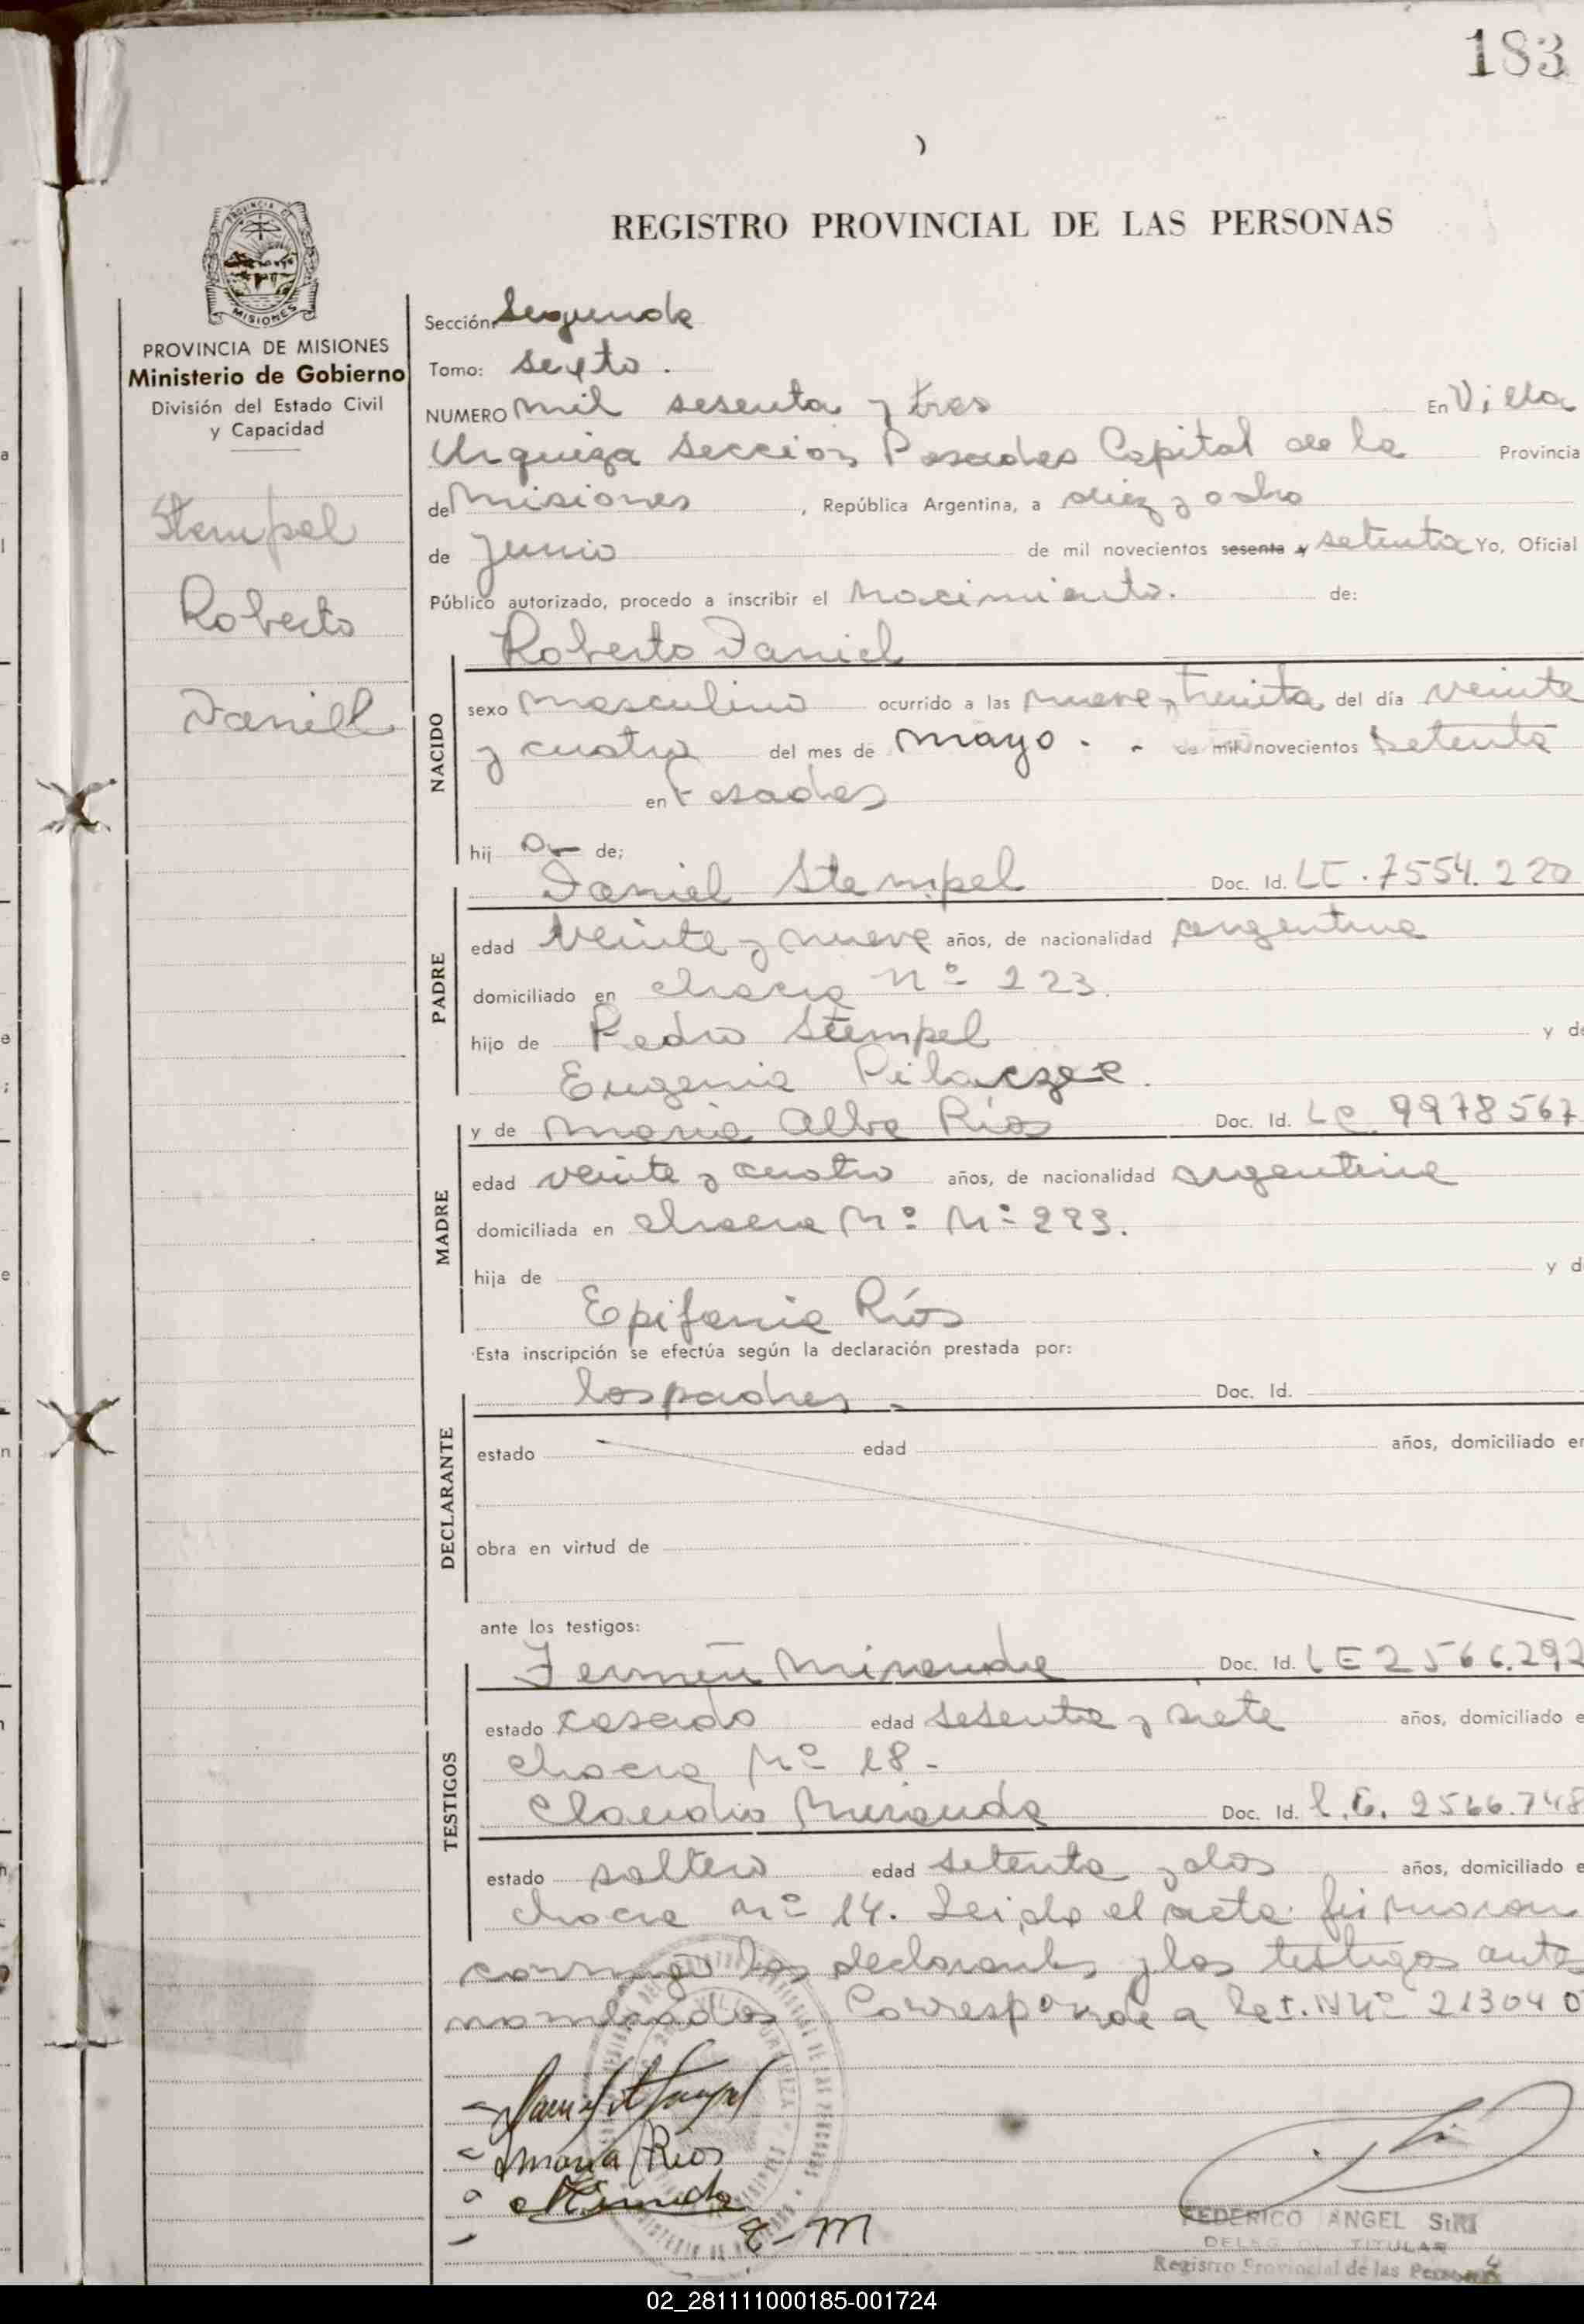 183
REGISTRO PROVINCIAL DE LAS PERSONAS
PROVINCIA DE
MISIONES
PROVINCIA DE MISIONES
Ministerio de Gobierno
División del Estado Civil
y Capacidad
Stempel
Roberto
Daniel
Sección: Segunda
Tomo: sexto.
NUMERO mil sesenta y tres En Villa
Urquiza Sección Posadas Capital de la Provincia
de Misiones, República Argentina, a diez y ocho
de Junio de mil novecientos sesenta y setenta Yo, Oficial
Público autorizado, procedo a inscribir el nacimiento. de:
Roberto Daniel
NACIDO
sexo masculino ocurrido a las nueve y treinta del día veinte
y cuatro del mes de mayo. - de mil novecientos setenta
en Posadas
hij o de;
Daniel Stempel Doc. Id. LE. 7554.220
PADRE
edad veinte y nueve años, de nacionalidad argentina
domiciliado en chacra Nº 223.
hijo de Pedro Stempel y de
Eugenia
y de Maria Alba Ríos Doc. Id. LC 9978567
MADRE
edad veinte y cuatro años, de nacionalidad argentina
domiciliada en chacra Nº Nº 223.
hija de y d
Epifania Ríos
Esta inscripción se efectúa según la declaración prestada por:
los padres. Doc. Id.
DECLARANTE
estado edad años, domiciliado en
obra en virtud de
ante los testigos:
Fermín Miranda Doc. Id. LE 2566.292
TESTIGOS
estado casado edad sesenta y siete años, domiciliado e
chacra Nº 18.
Claudio Miranda Doc. Id. L.E. 2566.748
estado soltero edad setenta y dos años, domiciliado e
chacra nº 14. Leida el acta firmaron
conmigo los declarantes y los testigos antes
nombrados. Corresponde a 213040
Maria Rios
FEDERICO ANGEL SIRI
TITULAR
Registro Provincial de las Personas
02_281111000185-001724